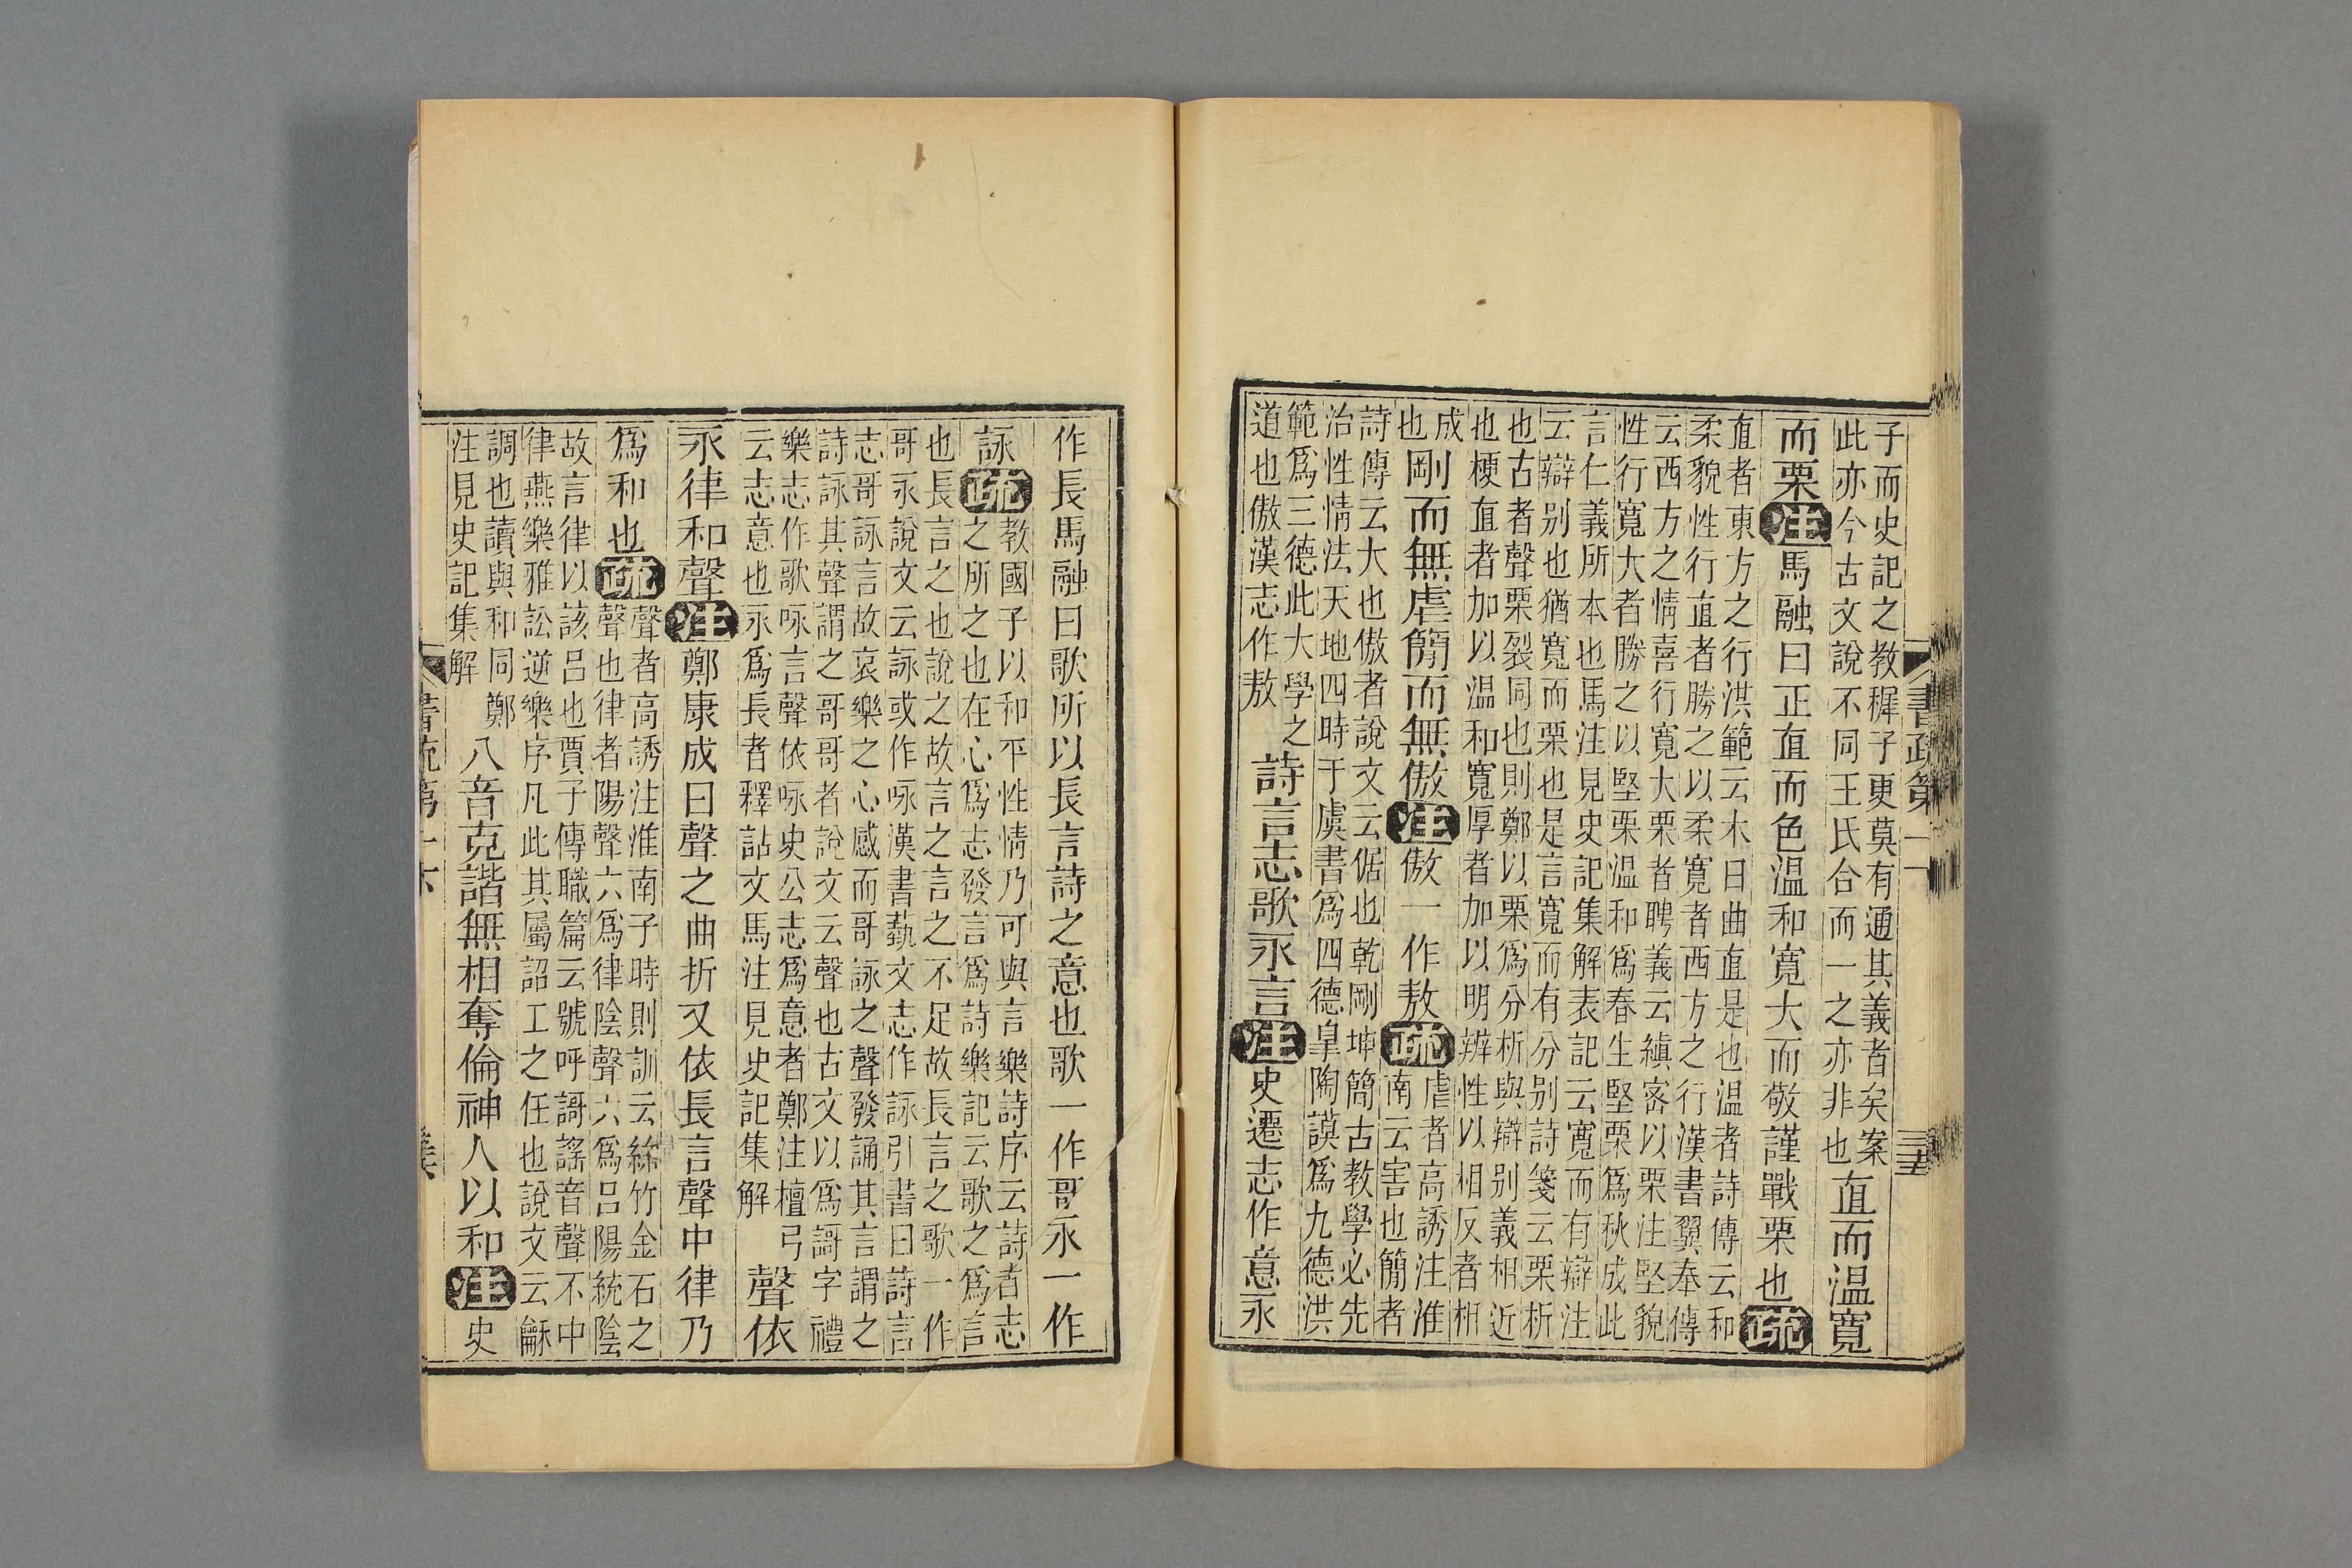 子而史記之教穉子更莫有通其義者矣案
此亦今古文說不同王氏合而一之亦非也
直而温寬
而栗注馬融曰正直而色温和寬大而敬謹戰栗也疏
直者東方之行洪範云木曰曲直是也温者詩傳云和
柔貌性行直者勝之以柔寬者西方之行漢書翼奉傳
云西方之情喜行寬大栗者聘義云縝密以栗注堅貌
性行寬大者勝之以堅栗温和爲春生堅栗爲秋成此
言仁義所本也馬注見史記集解表記云寬而有辯注
云辯别也猶寬而栗也是言寬而有分别詩箋云栗析
也古者聲栗裂同也則鄭以栗爲分析與辯别義相近
也梗直者加以温和寬厚者加以明辨性以相反者相
成
也
剛而無虐簡而無傲注傲一作敖疏
虐者高誘注淮
南云害也簡者
詩傳云大也傲者說文云倨也乾剛坤簡古教學必先
治性情法天地四時于虞書爲四德皐陶謨爲九德洪
範爲三德此大學之
道也傲漢志作敖
詩言志歌永言注史遷志作意永
作長馬融曰歌所以長言詩之意也歌一作哥永一作
詠疏
教國子以和平性情乃可與言樂詩序云詩者志
之所之也在心爲志發言爲詩樂記云歌之爲言
也長言之也說之故言之言之不足故長言之歌一作
哥永說文云詠或作咏漢書藝文志作詠引書曰詩言
志哥詠言故哀樂之心感而哥詠之聲發誦其言謂之
詩詠其聲謂之哥哥者說文云聲也古文以爲謌字禮
樂志作歌咏言聲依咏史公志爲意者鄭注檀弓
云志意也永爲長者釋詁文馬注見史記集解
聲依
永律和聲注鄭康成曰聲之曲折又依長言聲中律乃
爲和也疏
聲者高誘注淮南子時則訓云絲竹金石之
聲也律者陽聲六爲律陰聲六爲呂陽統陰
故言律以該呂也賈子傳職篇云號呼謌謠音聲不中
律燕樂雅訟逆樂序凡此其屬詔工之任也說文云龢
調也讀與和同鄭
注見史記集解
八音克諧無相奪倫神人以和注史